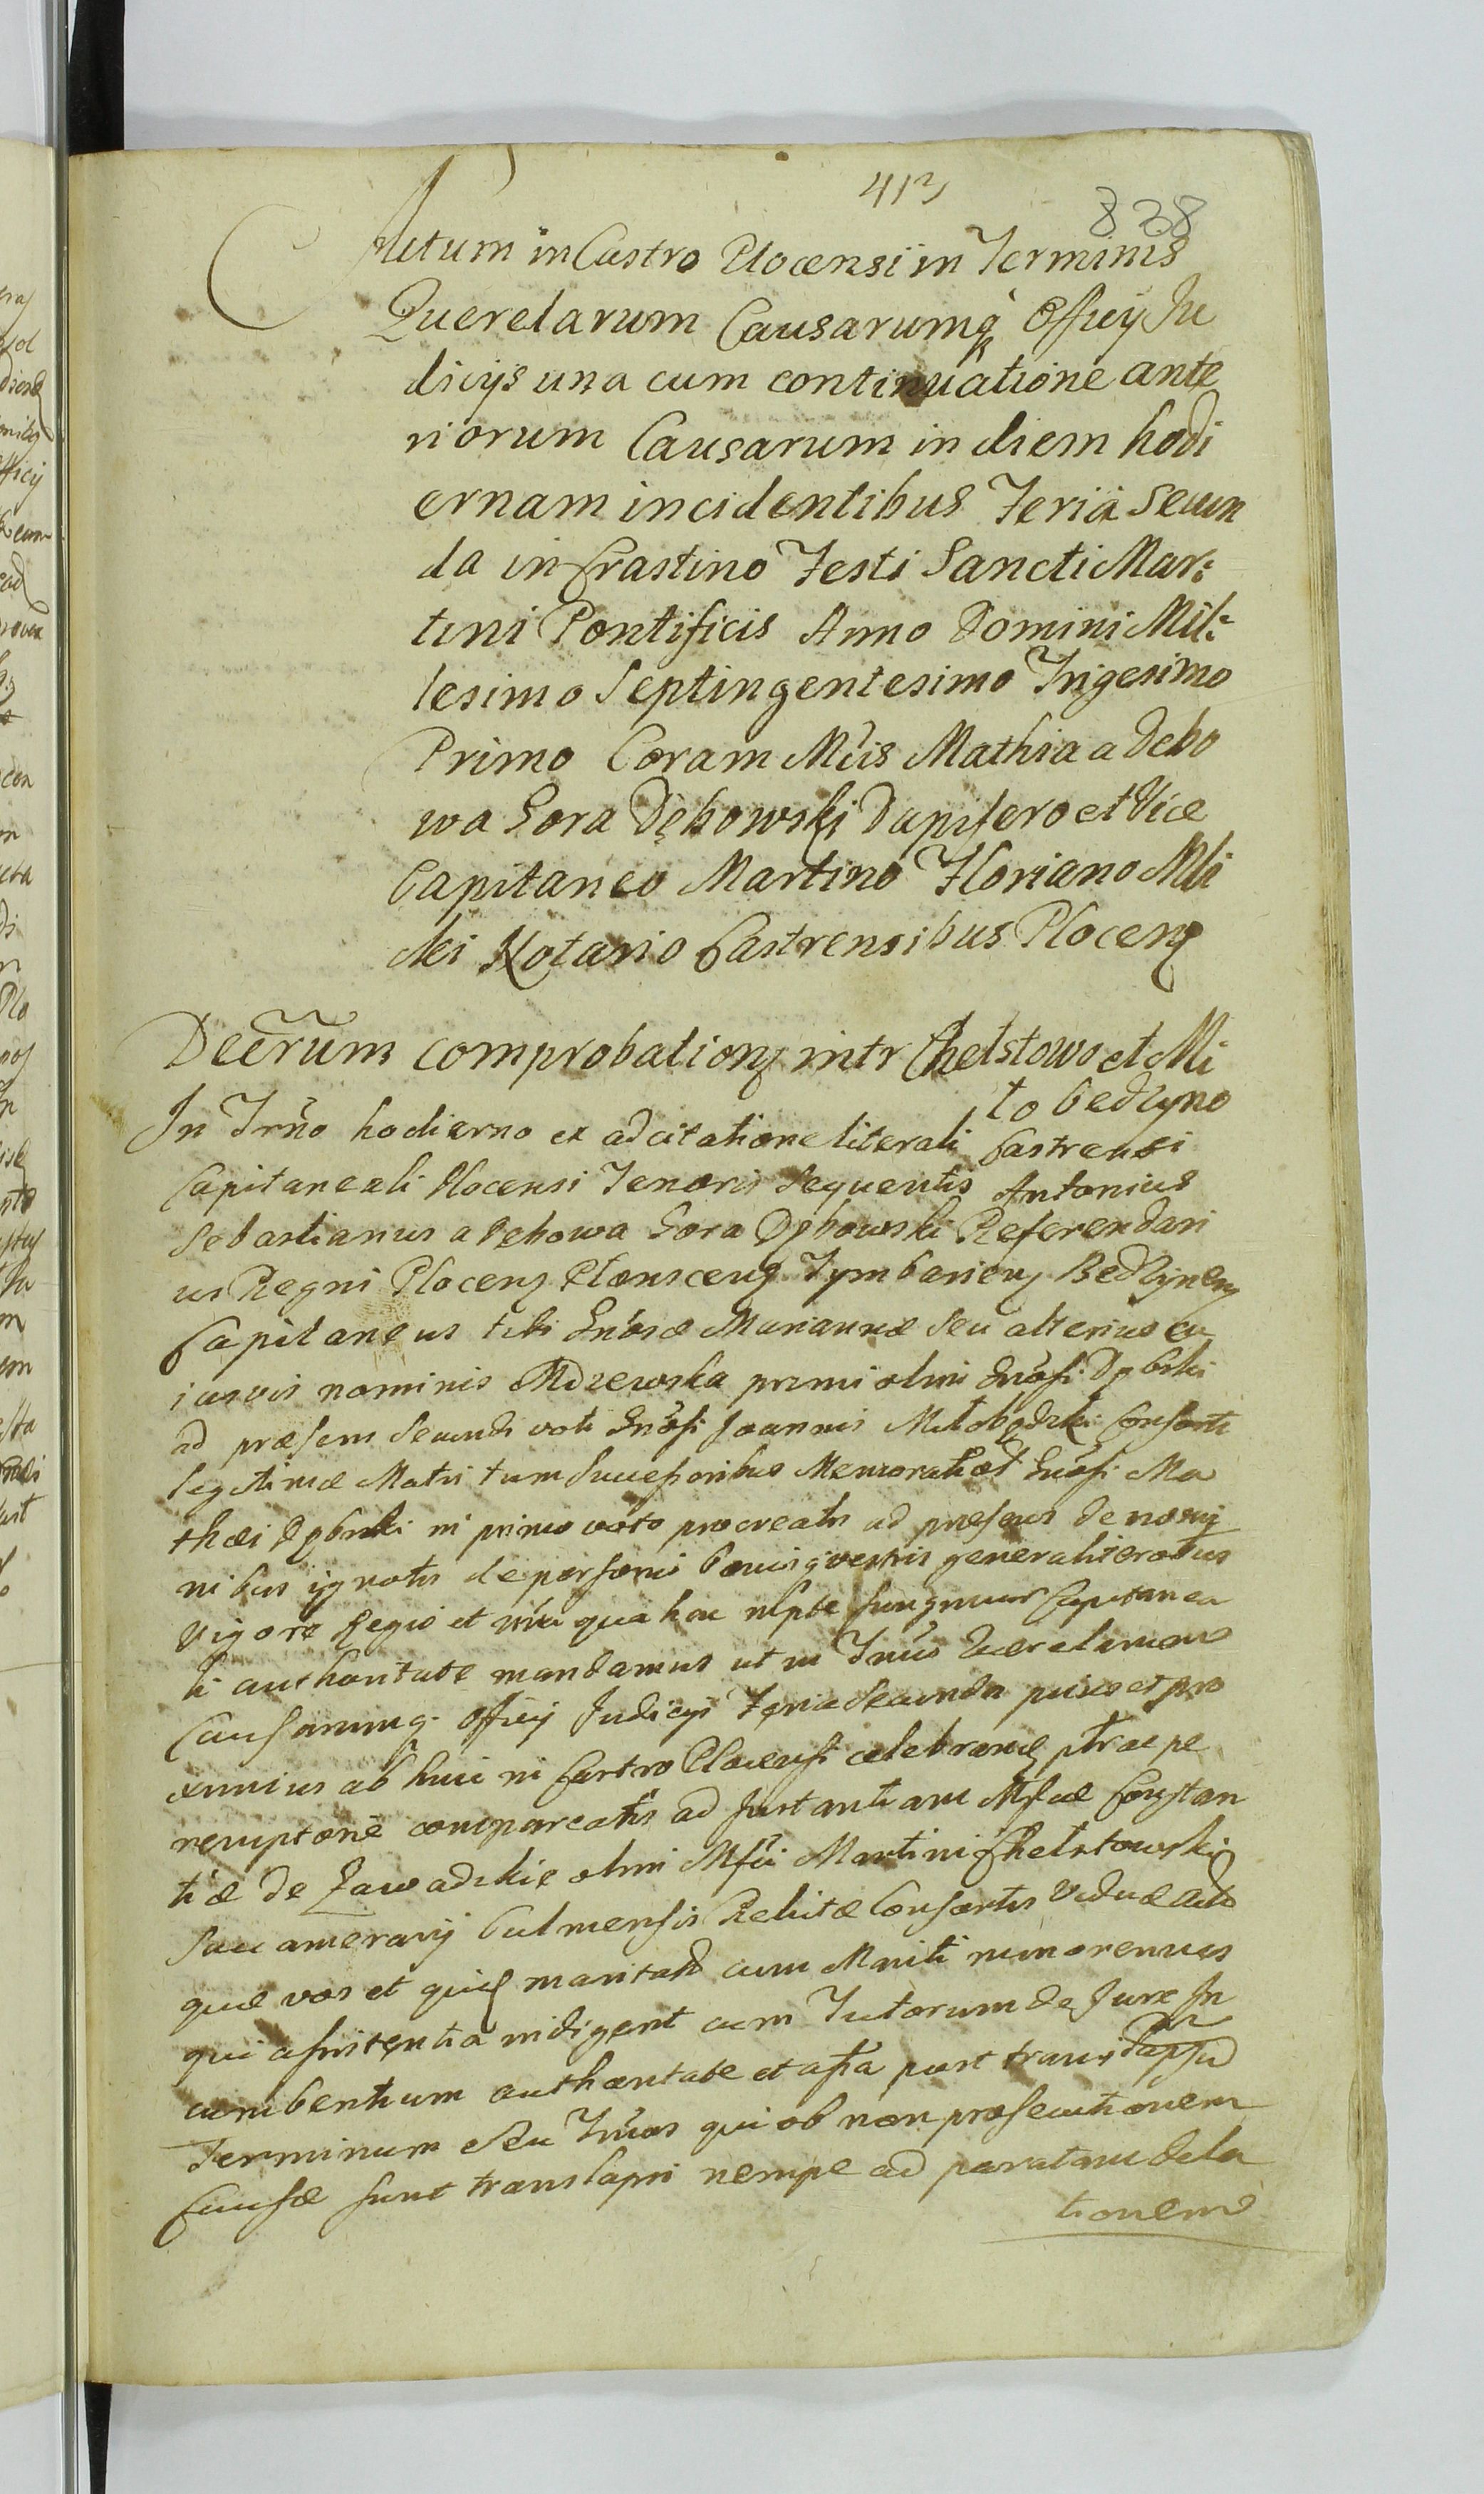 413
828
Actum in Castro Plocensi in Terminis
Querelarum Causarumq Officij Ju
dicijs una cum continuatione ante
riorum Causarum in diem hodi
ernam incidentibus Feria Secun
da in Crastino Festi Sancti Mar:
tini Pontificis Anno Domini Mil:
lesimo Septingentesimo Trigesimo
Primo Coram Mcis Mathia a Debo
wa Gora Dębowski Dapifero et Vice
Capitaneo Martino Floriano Mli
cki Notario Castrensibus Plocens
Decrum comprobationis intr Chelstows et Mi
tobedzyno
In Trno hodierno ex ad citatione literali Castrensi
Capitaneali Plocensi Tenoris Sequentis Antonius
Sebastianus a Debowa Gora Dębowski Referendari
us Regni Plocens Plonscens Tymbariens Bedzynens
Capitaneus tibi Gnosæ Mariannæ seu alterius cu
iusvis nominis Mdzewska primi olim Gnosi Dębski
ad præsens Secundi voti Gnosi Joannis Miłobędzki Consorti
legitimæ Matri tum Successoribus Gnosi Ma
thæi Dębski in primo voto procreatis ad præsens de nomi
nibus ignotis de personis bonisq vestris generaliter
vigore Regio et qua hac in pte fungimur Capitanea
li authoritate mandamus ut in Trnis Querelarum
Causarumq Officij Judicijs Feria Secunda et pro
xmius ab hinc in Castro Plocensi celebrand pe
remptorie compareatis ad Instantiam Mfcæ Constan
tiæ de Zawadzkie olim Mfci Martini Chełstowski
Succamerarij Culmensis Relictæ Consortis Viduæ
quæ vos et maritatas cum Mariti minorennes
qui assistentia indigent cum Tutorum de Jure In
cumbentium authoritate et assa post translapsu
Terminum seu Trnos qui ob non prosecutionem
Causæ sunt translapsi nempe ad paratam dela
tionem